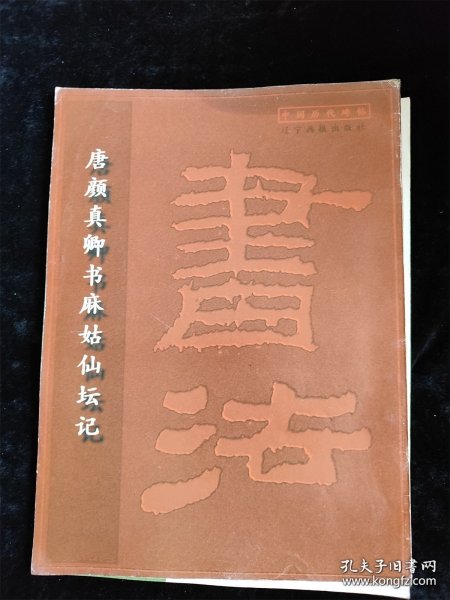 中国历代碑帖
辽宁画报出版社
唐颜真卿书麻姑仙坛记
書法
孔夫子旧书网
www.kongfz.com